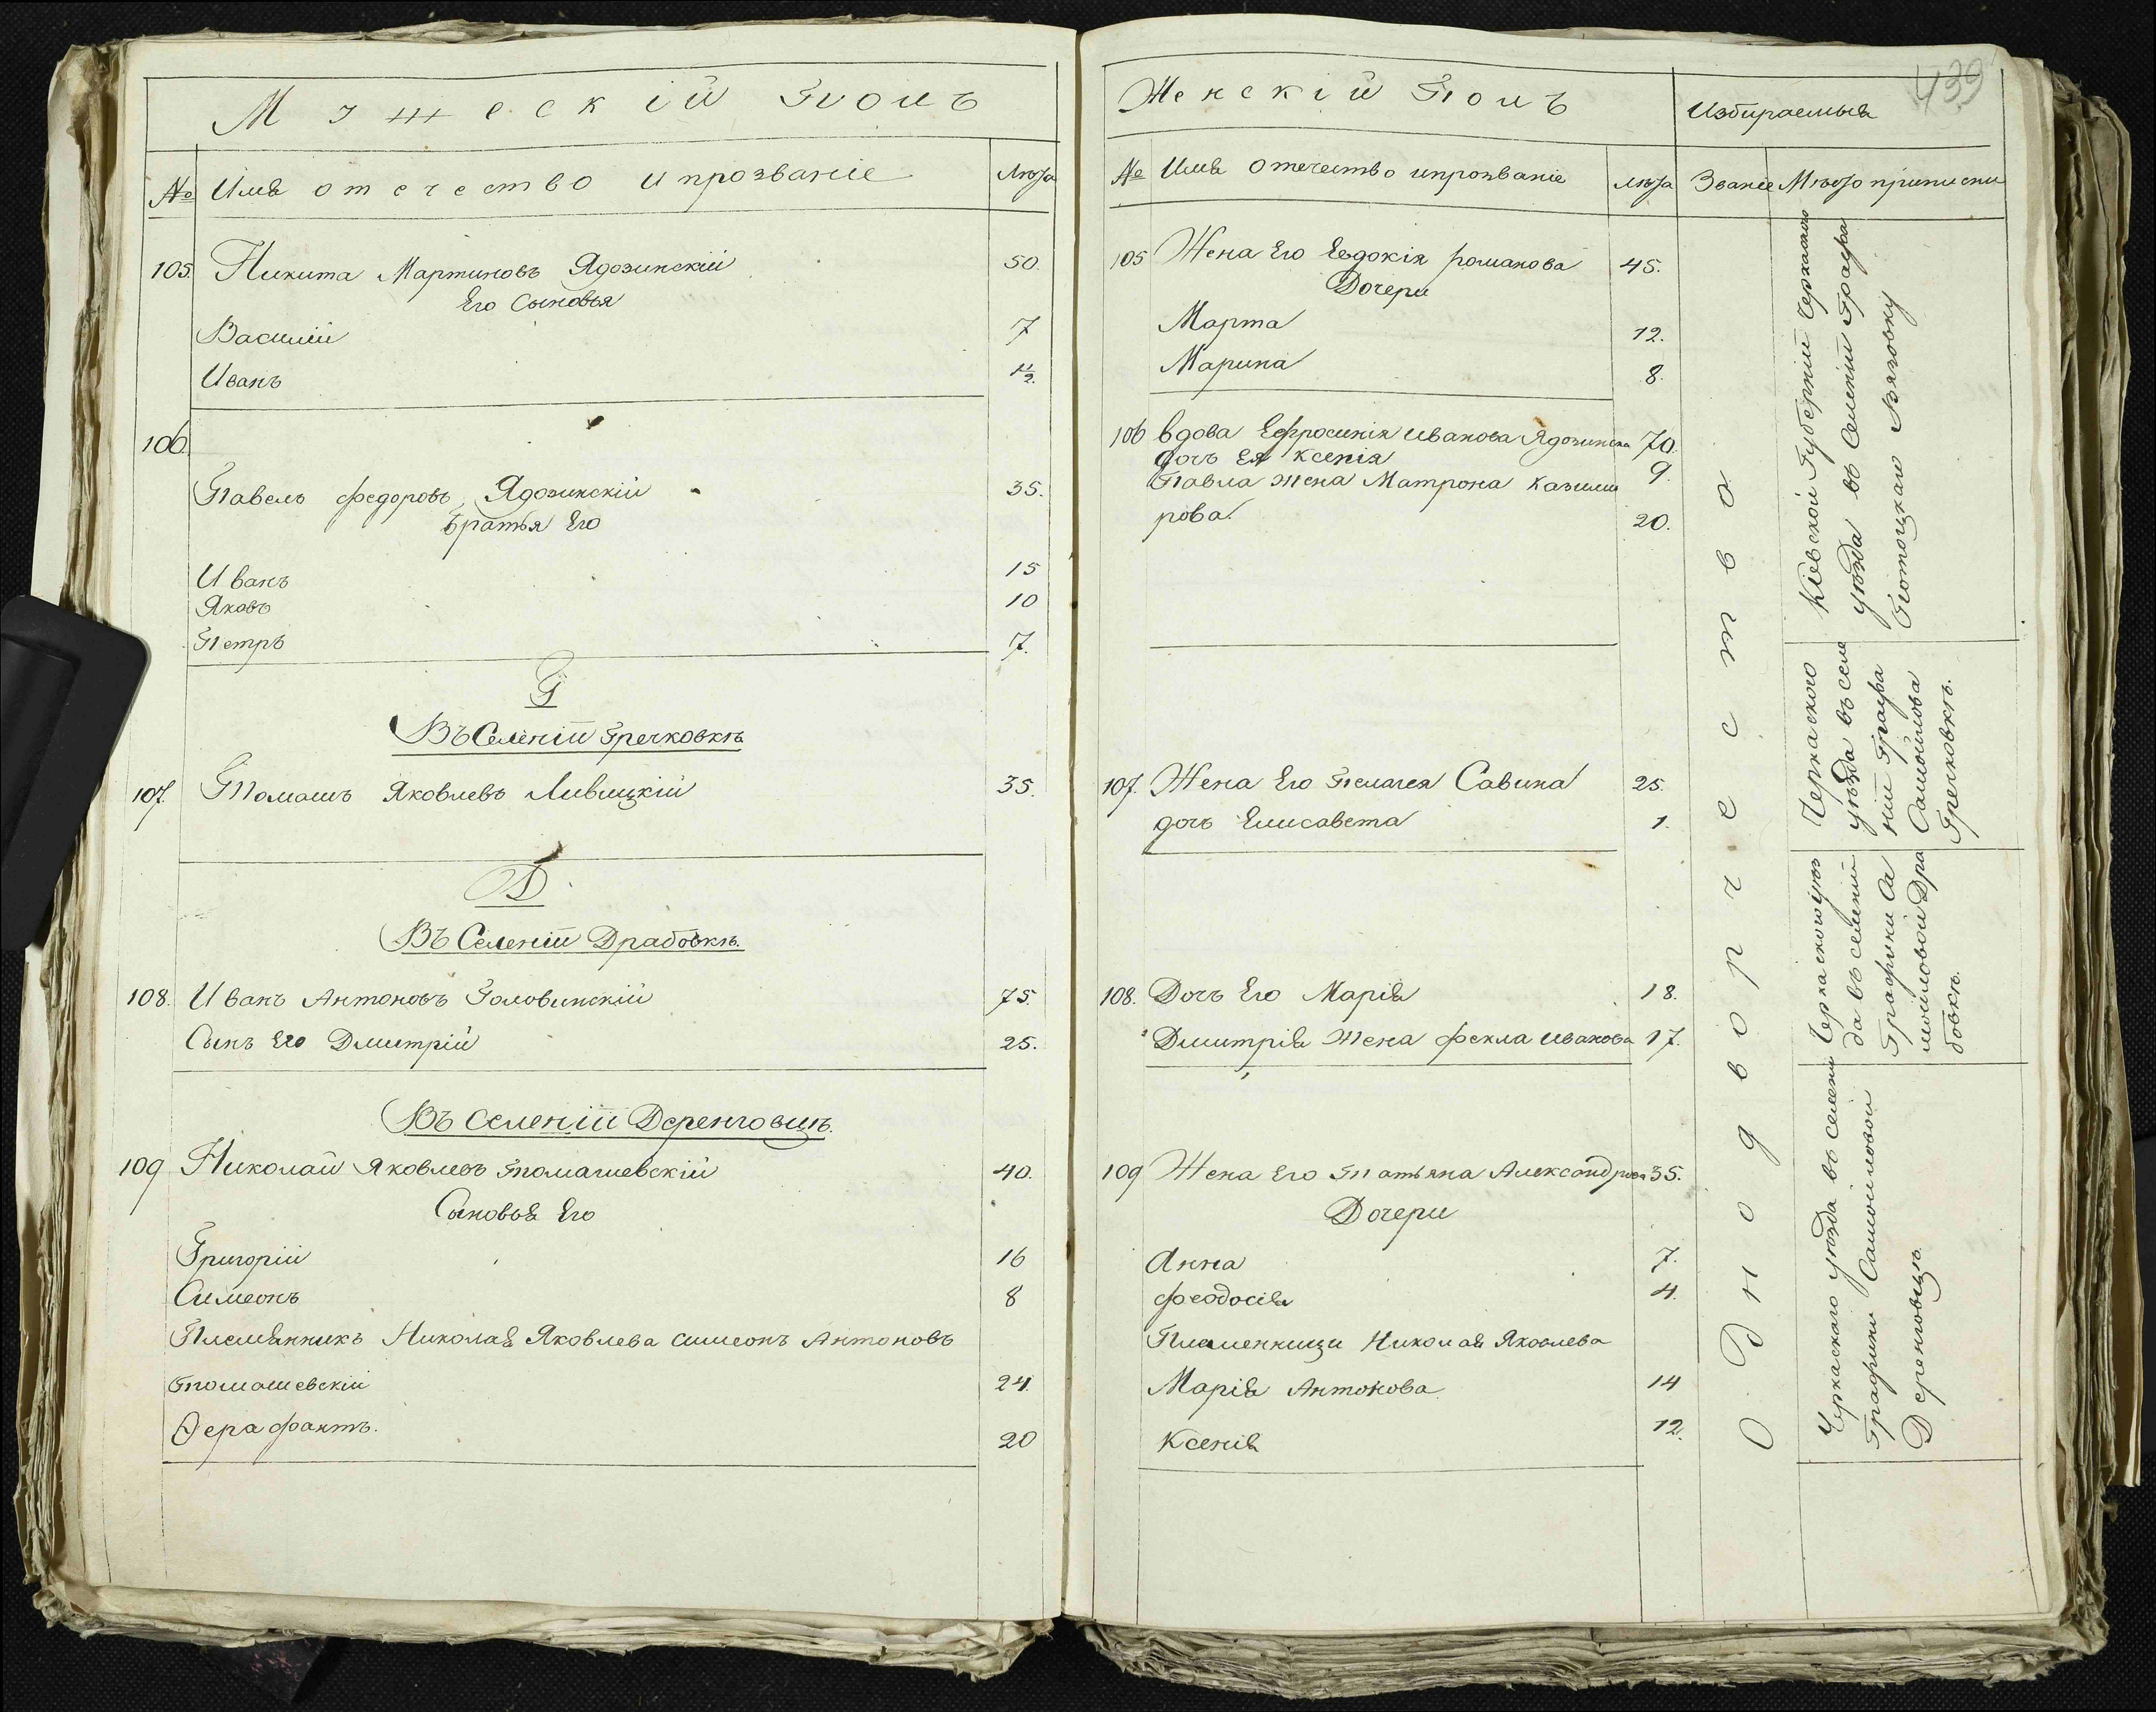 Мужескій Полъ
№ Имя отечество и прозваніе Лѣта
105. Никита Мартиновъ Ядозинскій 50.
Его Сыновья
Василій 7
Иванъ 1/2.
106.
Павелъ Федоровъ Ядозинскій 35.
Братья Его
Иванъ 15
Яковъ 10
Петръ 7.
Г
Въ Селеніи Гречковкѣ
107. Томашъ Яковлевъ Ливицкій 35.
Д
Въ Селеніи Драбовкѣ.
108. Иванъ Антоновъ Головинскій 75.
Сынъ Его Дмитрій 25.
Въ Селеніи Деренговцѣ.
109 Николай Яковлевъ Томашевскій 40.
Сыновья Его
Григорій 16
Симеонъ 8
Племянникъ Николая Яковлева Симеонъ Антоновъ
Томашевскій 24.
Ѳерафантъ. 20
439
Женскій Полъ Избираемыя
№ Имя отечество и прозваніе Лѣта Званіе Мѣсто приписки
105 Жена Его Евдокія романова 45.
Дочери
Марта 12.
Марина 8.
106 вдова Ефросинія иванова Ядозинска 70.
дочь Ея Ксенія 9.
Павла жена Матрона казими
рова. 20.
107. Жена Его Пелагея Савина 25.
дочь Елисавета 1.
108. Дочь Его Марія 18.
Дмитрія жена Фекла иванова 17.
109 Жена Его Татьяна Александрова 35.
Дочери
Анна 7.
Феодосія 4.
Племенници Николая Яковлева
Марія Антонова 14
Ксенія 12.
Однодворчества
Кіевской Губерніи Черкаского
уѣзда въ Селеніи Графа
Потоцкаго Вязовку
Черкаского
уѣзда въ селе
ніи Графа
Самоилова
Гречковкѣ.
Черкаского уѣз
да въ селеніи
Графини Са
моиловой Дра
бовкѣ.
Черкаскаго уѣзда въ селени
Графини Самоиловой
Деренговцѣ